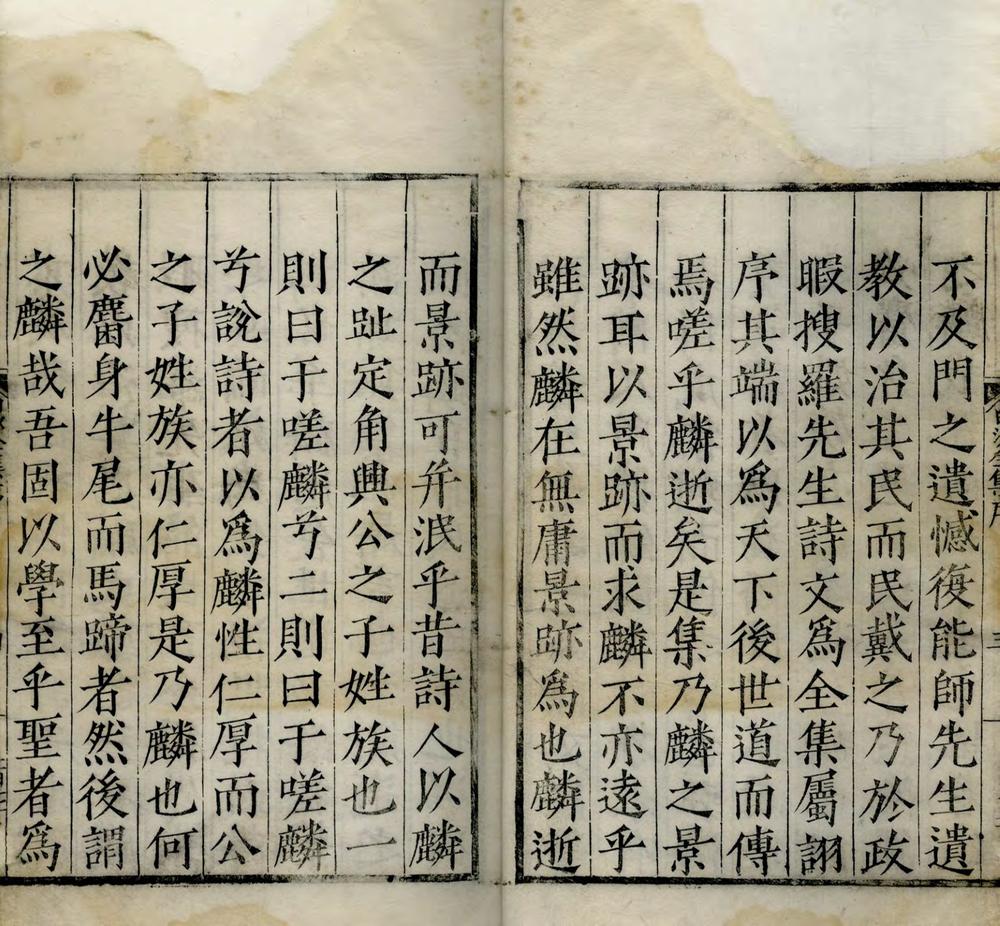 不及門之遺憾復能師先生遺
教以治其民而民戴之乃於政
暇搜羅先生詩文為全集屬詡
序其端以為天下後世道而傳
焉嗟乎麟逝矣是集乃麟之景
跡耳以景跡而求麟不亦遠乎
雖然麟在無庸景跡為也麟逝
而景跡可并泯乎昔詩人以麟
之趾定角興公之子姓族也一
則曰于嗟麟兮二則曰于嗟麟
兮說詩者以為麟性仁厚而公
之子姓族亦仁厚是乃麟也何
必麕身牛尾而馬蹄者然後謂
之麟哉吾固以學至乎聖者為